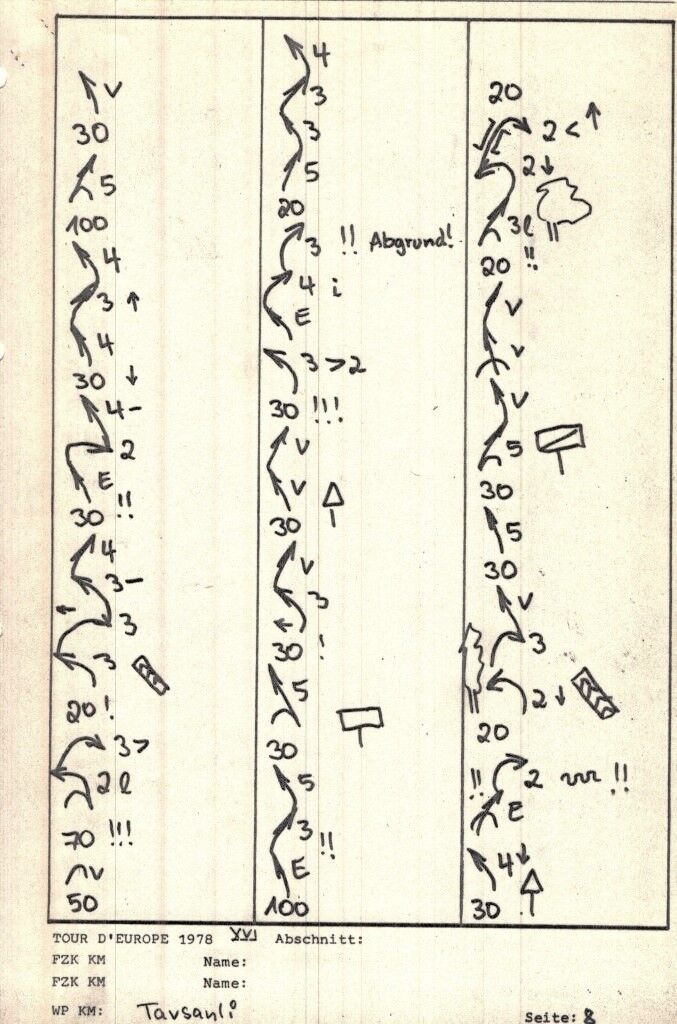 v
30
5
100
4
3 ↑
4
30 ↓
4-
2
E
30 !!
4
3-
3
3
20 !
3 >
2 l
70 !!!
v
50
4
3
3
5
20
3 !! Abgrund!
4 i
E
3 > 2
30 !!!
v
v
30
v
3
30 !
5
30
5
3 !!
E
100
20
2 < ↑
2 ↓
3l
20 !!
v
v
v
5
30
5
30
v
3
2 ↓
20
!! 2 !!
E
4 ↓
30
TOUR D'EUROPE 1978 XVI Abschnitt:
FZK KM Name:
FZK KM Name:
WP KM: Tavsanli Seite: 8